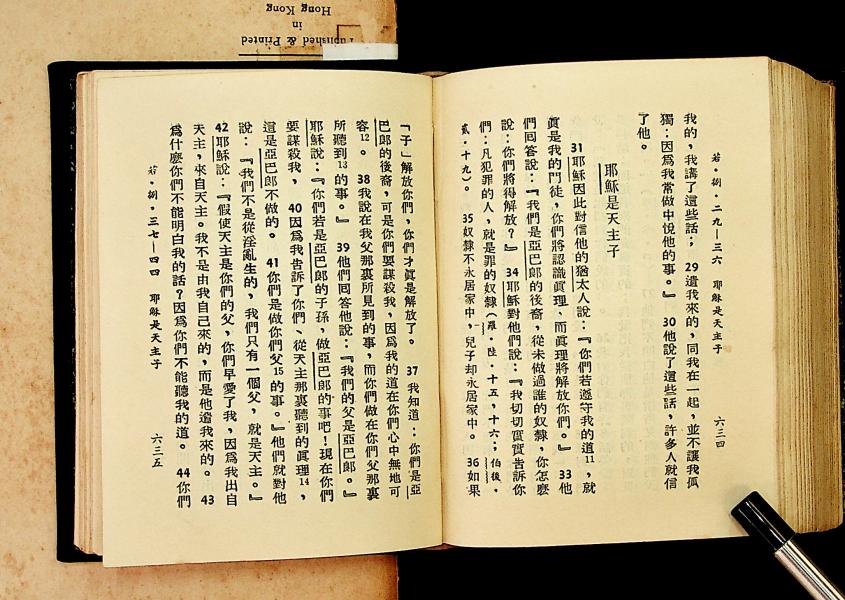 Published & Printed
in
Hong Kong
若・捌・二九—三六　耶穌是天主子　六三四
我的，我講了這些話； 29遣我來的，同我在一起，並不讓我孤
獨：因爲我常做中悅他的事。』 30他說了這些話，許多人就信
了他。
耶穌是天主子
31耶穌因此對信他的猶太人說：『你們若遵守我的道11，就
眞是我的門徒，你們將認識眞理、而眞理將解放你們。』 33他
們回答說：『我們是亞巴郎的後裔，從未做過誰的奴隸，你怎麼
說：你們將得解放？』 34耶穌對他們說：『我切切實實告訴你
們：凡犯罪的人，就是罪的奴隸（羅・陸・十五，十六；伯後，
貳・十九）。 35奴隸不永居家中，兒子却永居家中。 36如果
「子」解放你們，你們才眞是解放了。 37我知道：你們是亞
巴郎的後裔，可是你們要謀殺我，因爲我的道在你們心中無地可
容12。 38我說在我父那裏所見到的事，而你們做在你們父那裏
所聽到13的事。』 39他們回答他說：『我們的父是亞巴郎。』
耶穌說：『你們若是亞巴郎的子孫，做亞巴郎的事吧！現在你們
要謀殺我， 40因爲我告訴了你們、從天主那裏聽到的眞理14，
這是亞巴郎不做的。 41你們是做你們父15的事。』他們就對他
說：『我們不是從淫亂生的，我們只有一個父，就是天主。』
42耶穌說：『假使天主是你們的父，你們早愛了我，因爲我出自
天主，來自天主。我不是由我自己來的，而是他遣我來的。 43
爲什麼你們不能明白我的話？因爲你們不能聽我的道。 44你們
若・捌・三七—四四　耶穌是天主子　六三五